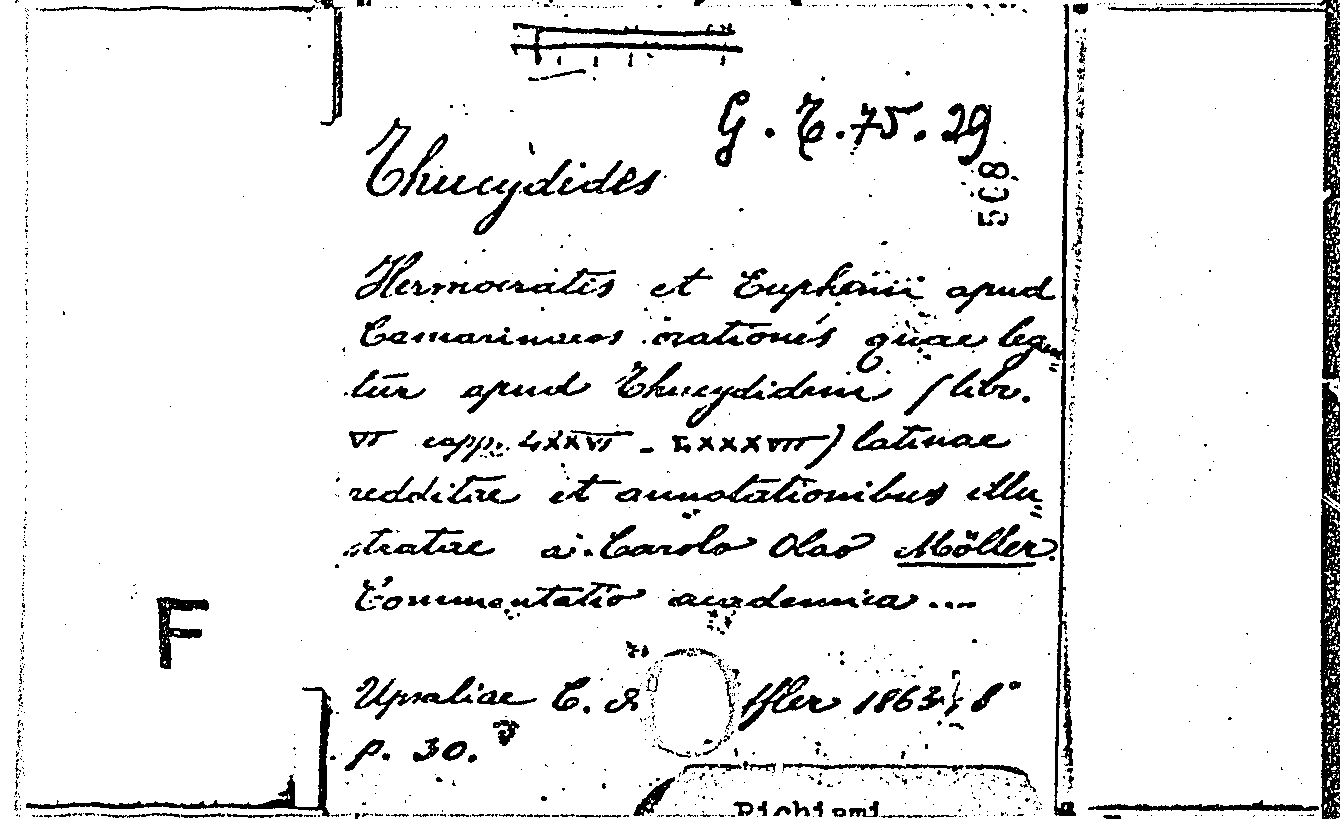 G. T. 75. 29
508
Thucydides
Hermocratis et Euphemi apud
Camarinaeos orationes quae legun
tur apud Thucydidem (libr.
VI capp. LXXVI - LXXXVII) latinae
redditae et annotationibus illu
stratae a Carolo Olao Möller.
Commentatio academica ....
Upsaliae C. 1863, 8°
p. 30.
F
Richiami